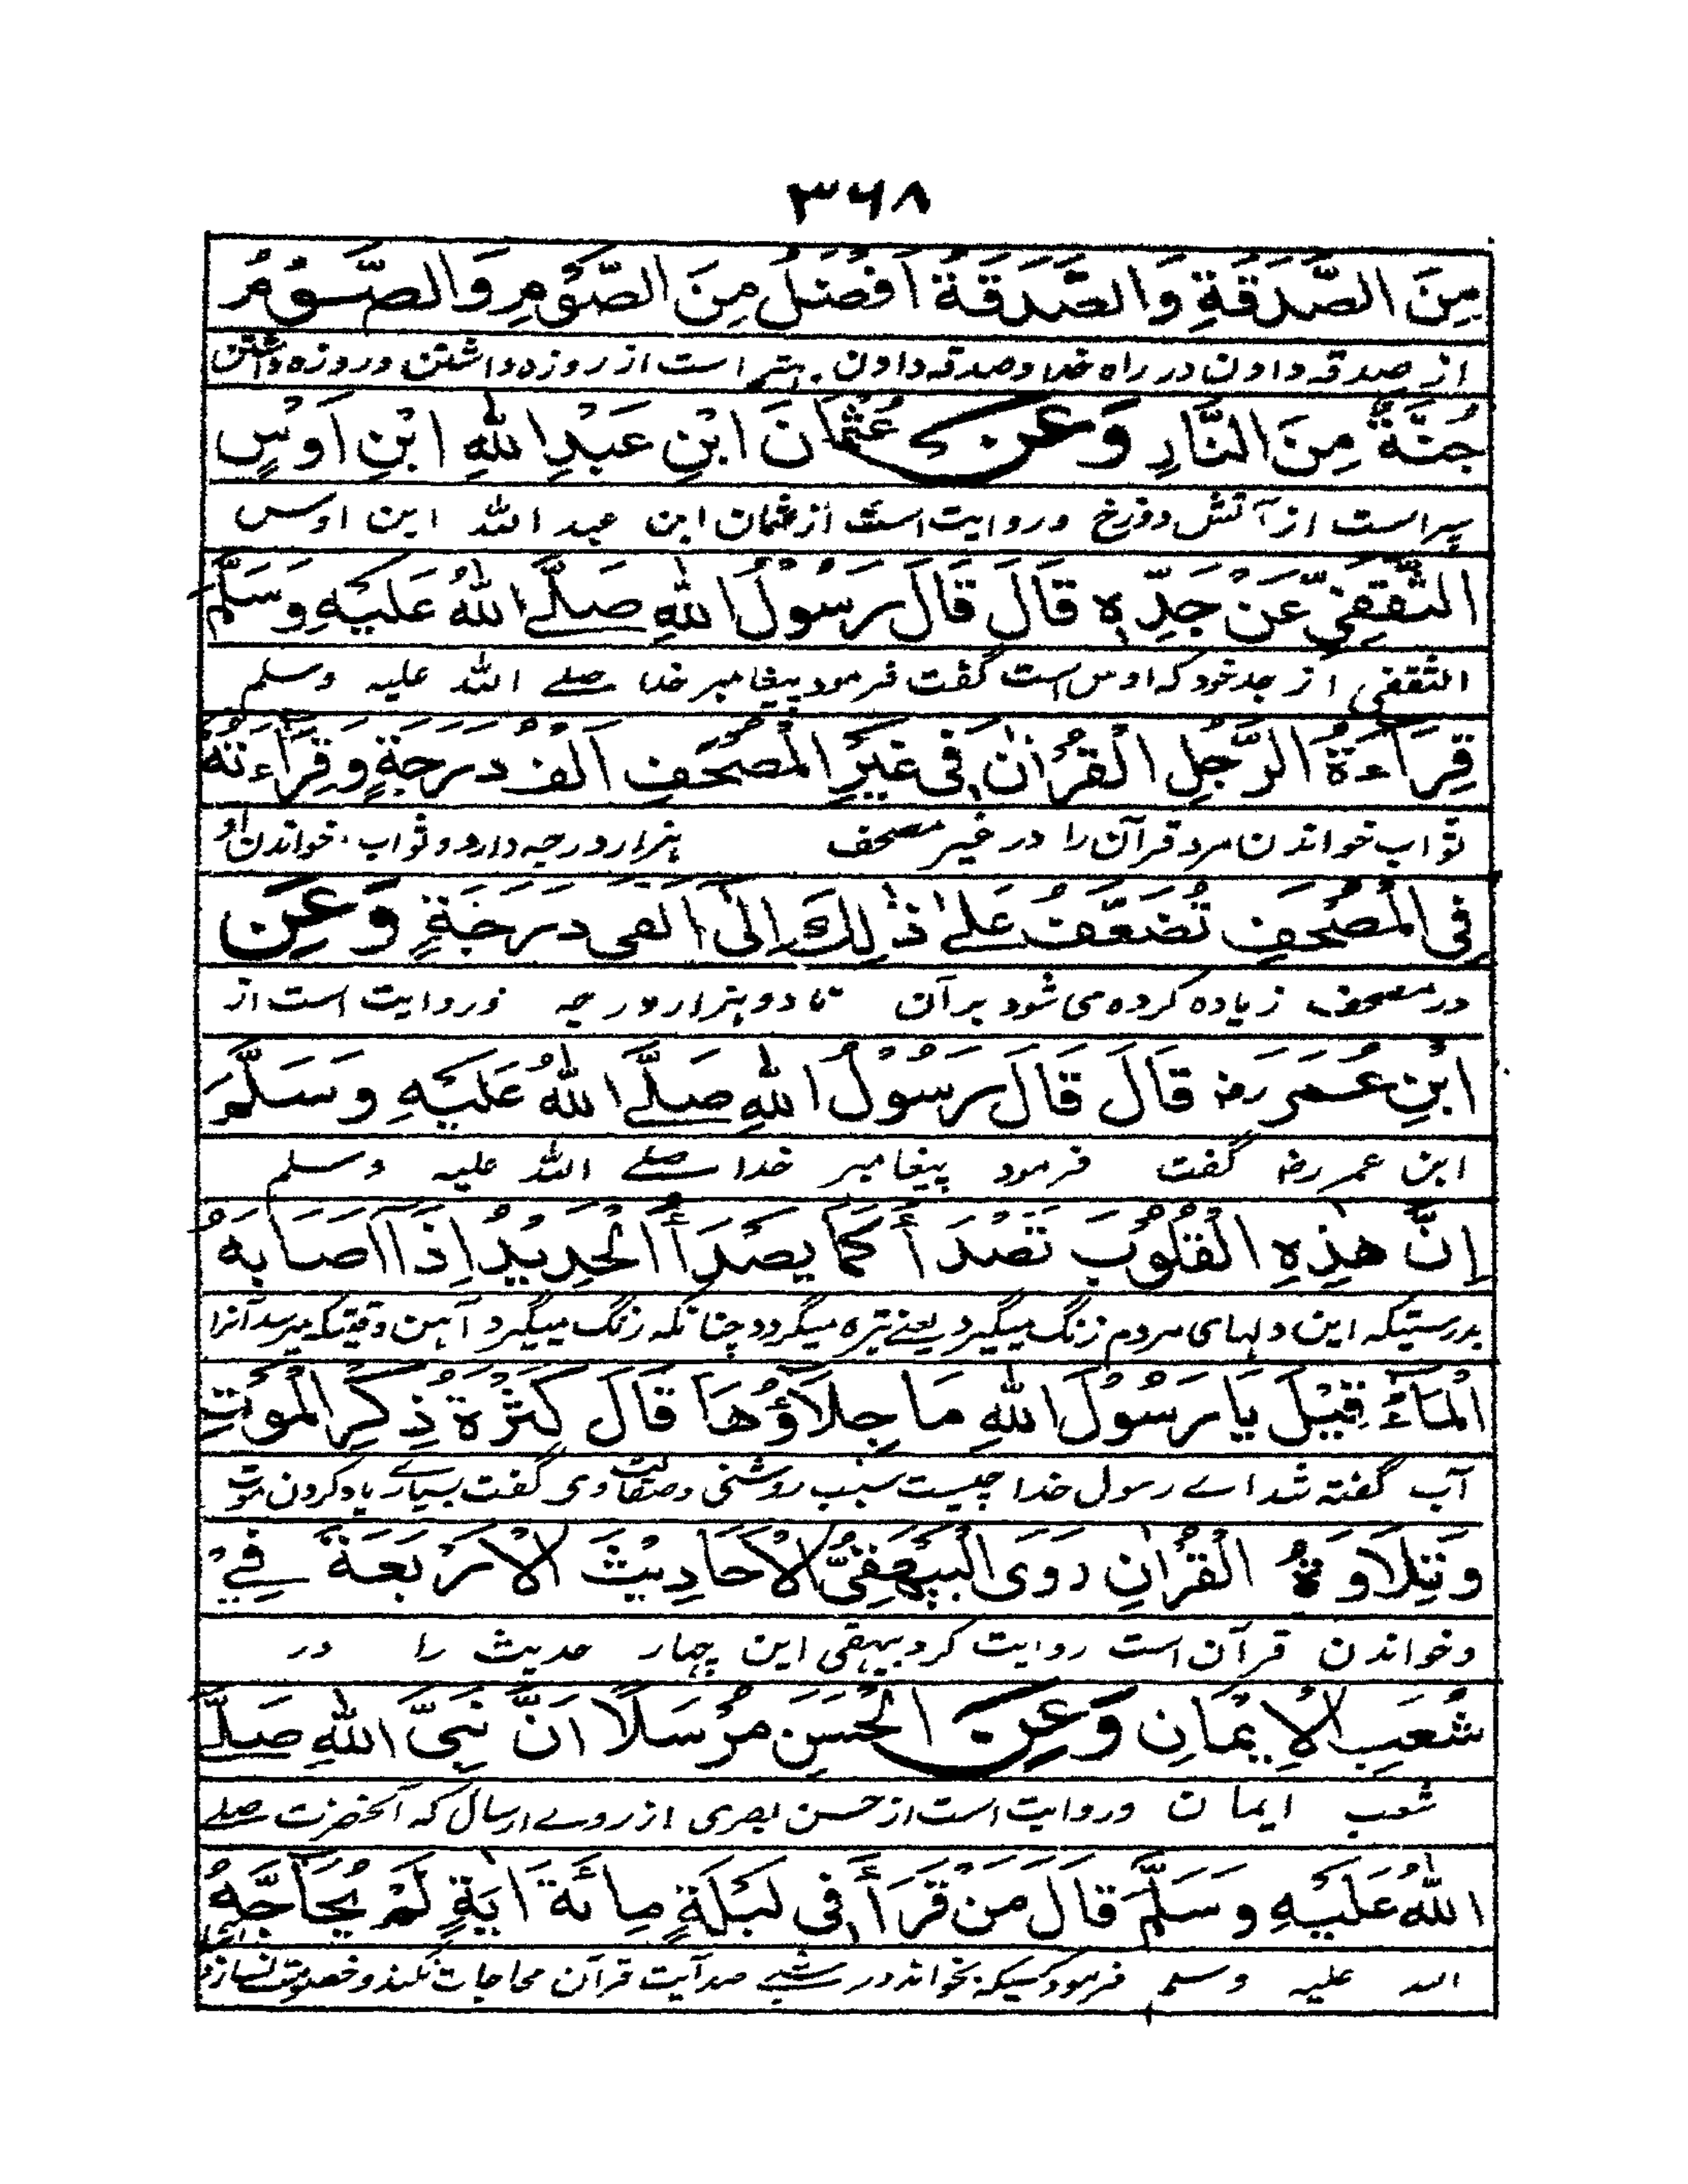 ۳۶۸
مِنَ الصَّدَقَةِ وَالصَّدَقَةُ اَفْضَلُ مِنَ الصَّوْمِ وَالصَّوْمُ
از صدقہ دادن در راہ خدا و صدقہ دادن بہتر است از روزہ داشتن و روزہ داشتن
جُنَّةٌ مِنَ النَّارِ وَعَنْ عُثْمَانَ ابْنِ عَبْدِ اللّٰهِ ابْنِ اَوْسٍ
سپر است از آتش دوزخ و روایت است از عثمان ابن عبد اللہ ابن اوس
الثَّقَفِيِّ عَنْ جَدِّهٖ قَالَ قَالَ رَسُوْلُ اللّٰهِ صَلَّے اللّٰهُ عَلَيْهِ وَسَلَّمَ
الثقفی از جد خود کہ اوس است گفت فرمود پیغامبر خدا صلے اللہ علیہ وسلم
قِرَاءَةُ الرَّجُلِ الْقُرْاٰنَ فِى غَيْرِ الْمُصْحَفِ اَلْفُ دَرَجَةٍ وَقِرَاءَتُهُ
ثواب خواندن مرد قرآن را در غیر مصحف ہزار درجہ دارد و ثواب خواندن او
فِى الْمُصْحَفِ تُضَعَّفُ عَلٰے ذٰلِكَ اِلٰى اَلْفَى دَرَجَةٍ وَعَنِ
در مصحف زیادہ کردہ می شود بر آن تا دو ہزار درجہ و روایت است از
ابْنِ عُمَرَ رض قَالَ قَالَ رَسُوْلُ اللّٰهِ صَلَّے اللّٰهُ عَلَيْهِ وَسَلَّمَ
ابن عمر رض گفت فرمود پیغامبر خدا صلے اللہ علیہ وسلم
اِنَّ هٰذِهِ الْقُلُوْبَ تَصْدَأُ كَمَا يَصْدَأُ الْحَدِيْدُ اِذَا اَصَابَهُ
بدرستیکہ این دلہای مردم زنگ میگیرد یعنے تیرہ میگردد چنانکہ زنگ میگیرد آہن وقتیکہ میرسد آنرا
الْمَاءُ قِيْلَ يَا رَسُوْلَ اللّٰهِ مَا جِلَاؤُهَا قَالَ كَثْرَةُ ذِكْرِ الْمَوْتِ
آب گفتہ شد اے رسول خدا چیست سبب روشنی و صفائ وی گفت بسیارے یاد کردن موت
وَتِلَاوَةُ الْقُرْاٰنِ رَوَى الْبَيْهَقِىُّ الْاَحَادِيْثَ الْاَرْبَعَةَ فِے
و خواندن قرآن است روایت کرد بیہقی این چہار حدیث را در
شُعَبِ الْاِيْمَانِ وَعَنِ الْحَسَنِ مُرْسَلًا اَنَّ نَبِىَّ اللّٰهِ صَلَّے
شعب ایمان و روایت است از حسن بصری از روے ارسال کہ آنحضرت صلے
اللّٰهُ عَلَيْهِ وَسَلَّمَ قَالَ مَنْ قَرَأَ فِى لَيْلَةٍ مِائَةَ اٰيَةٍ لَمْ يُحَاجَّهُ
اللہ علیہ وسلم فرمود کسیکہ بخواند در شبے صد آیت قرآن محاجات نکند و خصومت نسازد